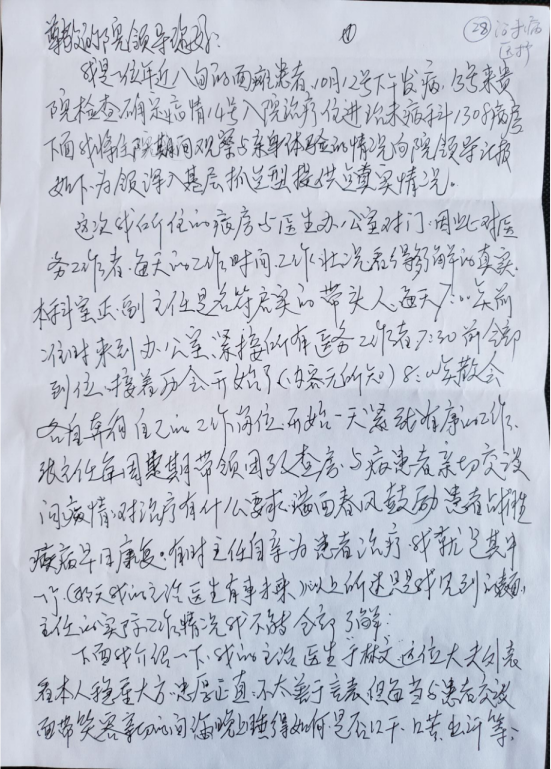 尊敬的院领导你好: ① ㉘ 治未病
医疗
我是一位年近八旬的面瘫患者,10月12号下午发病,13号来贵
院检查确定病情14号入院治疗住进治未病科1308病房
下面我将住院期间观察与亲身体验的情况向院领导汇报
如下,为领深入基层抓典型提供真实情况。
这次我所住的病房与医生办公室对门,因此对医
务工作者,每天的工作时间,工作状况看得了解的真实,
本科室正,副主任是名符启实的带头人,每天7:00关前
准时来到办公室,紧接所有医务工作者7:30前全部
到位,接着历会开始了(内容无所知)8:00散会
各自奔自己的工作岗位,开始一天紧张有序的工作,
张主任每周期带领团队查房,与病患者亲切交谈
问病情,对治疗有什么要求,满面春风鼓励患者战胜
疾病早日康复。有时主任自亲为患者治疗,我就是其中
一个(那天我的主治医生有事未来)以上所述是我见到的
主任的实际工作情况我不能全部了解;
下面我介绍一下,我的主治医生于林文,这位大夫外表
看本人稳重大方,忠厚正直,不太善于言表,但每当与患者交谈
面带笑容亲切的问,晚上睡得如何,是否口干,口苦,出汗等;